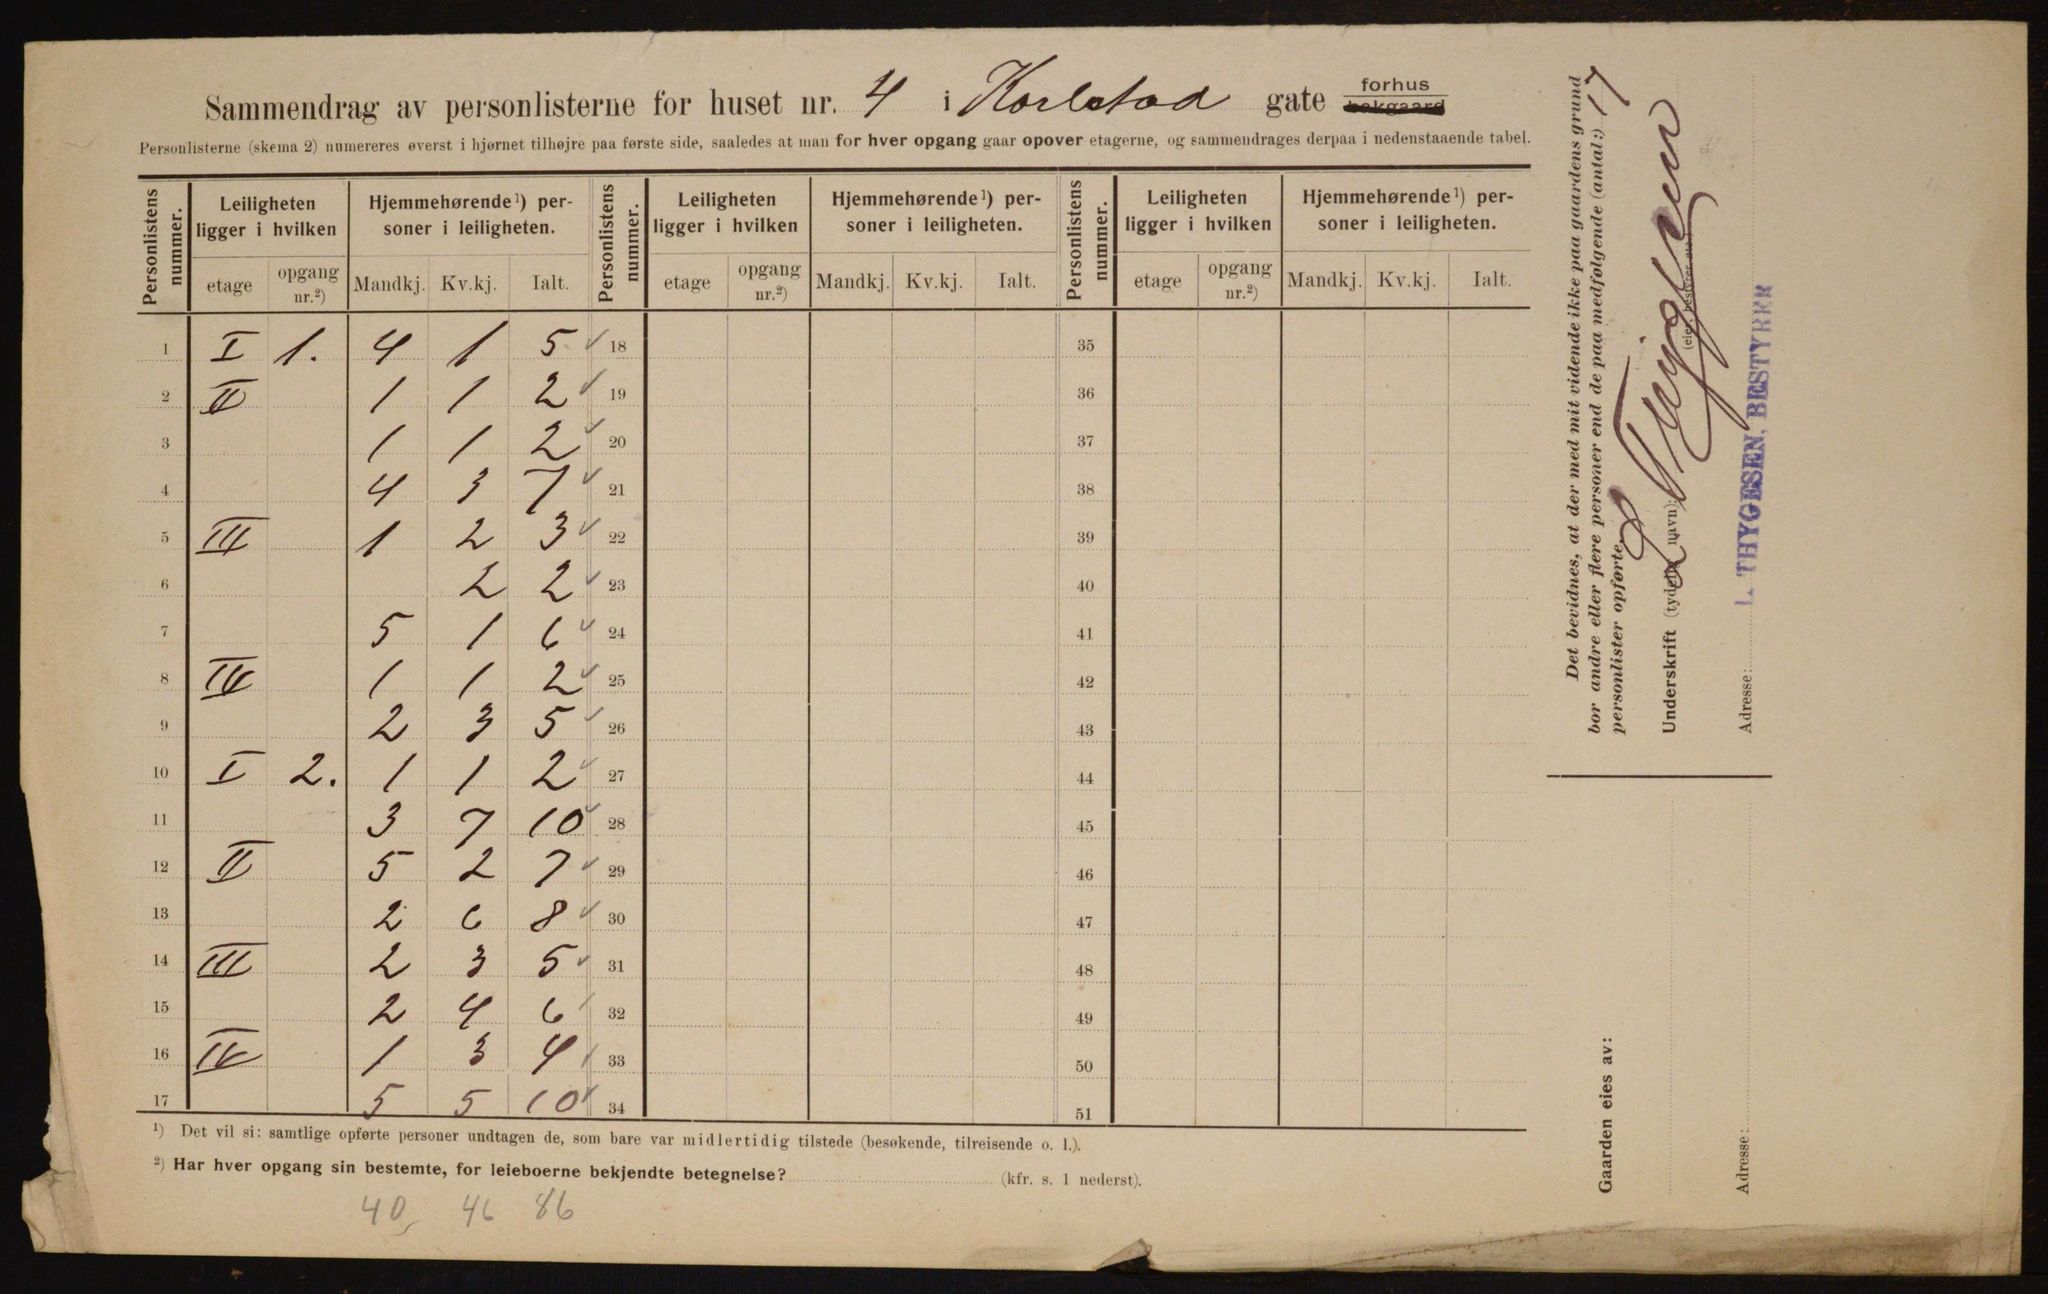 Sammendrag av personlisterne for huset nr. 4 i Karlstad gate forhus bakgaard
Personlisterne (skema 2) numereres øverst i hjørnet tilhøjre paa første side, saaledes at man for hver opgang gaar opover etagerne, og sammendrages derpaa i nedenstaaende tabel.
Personlistens nummer. Leiligheten ligger i hvilken Hjemmehørende¹) personer i leiligheten. Personlistens nummer. Leiligheten ligger i hvilken Hjemmehørende¹) personer i leiligheten. Personlistens nummer. Leiligheten ligger i hvilken Hjemmehørende¹) personer i leiligheten.
etage opgang nr.²) Mandkj. Kv.kj. Ialt. etage opgang nr.²) Mandkj. Kv.kj. Ialt. etage opgang nr.²) Mandkj. Kv.kj. Ialt.
1 I 1. 4 1 5 18 35
2 II 1 1 2 19 36
3 1 1 2 20 37
4 4 3 7 21 38
5 III 1 2 3 22 39
6 2 2 23 40
7 5 1 6 24 41
8 IV 1 1 2 25 42
9 2 3 5 26 43
10 I 2. 1 1 2 27 44
11 3 7 10 28 45
12 II 5 2 7 29 46
13 2 6 8 30 47
14 III 2 3 5 31 48
15 2 4 6 32 49
16 IV 1 3 4 33 50
17 5 5 10 34 51
¹) Det vil si: samtlige opførte personer undtagen de, som bare var midlertidig tilstede (besøkende, tilreisende o. l.).
²) Har hver opgang sin bestemte, for leieboerne bekjendte betegnelse? (kfr. s. 1 nederst).
40 46 86
Det bevidnes, at der med mit vidende ikke paa gaardens grund
bor andre eller flere personer end de paa medfølgende (antal:) 17
personlister opførte.
Underskrift (tydelig navn): L Thygesen
(eier, bestyrer etc.)
Adresse: L. THYGESEN, BESTYRER
Gaarden eies av:
Adresse: